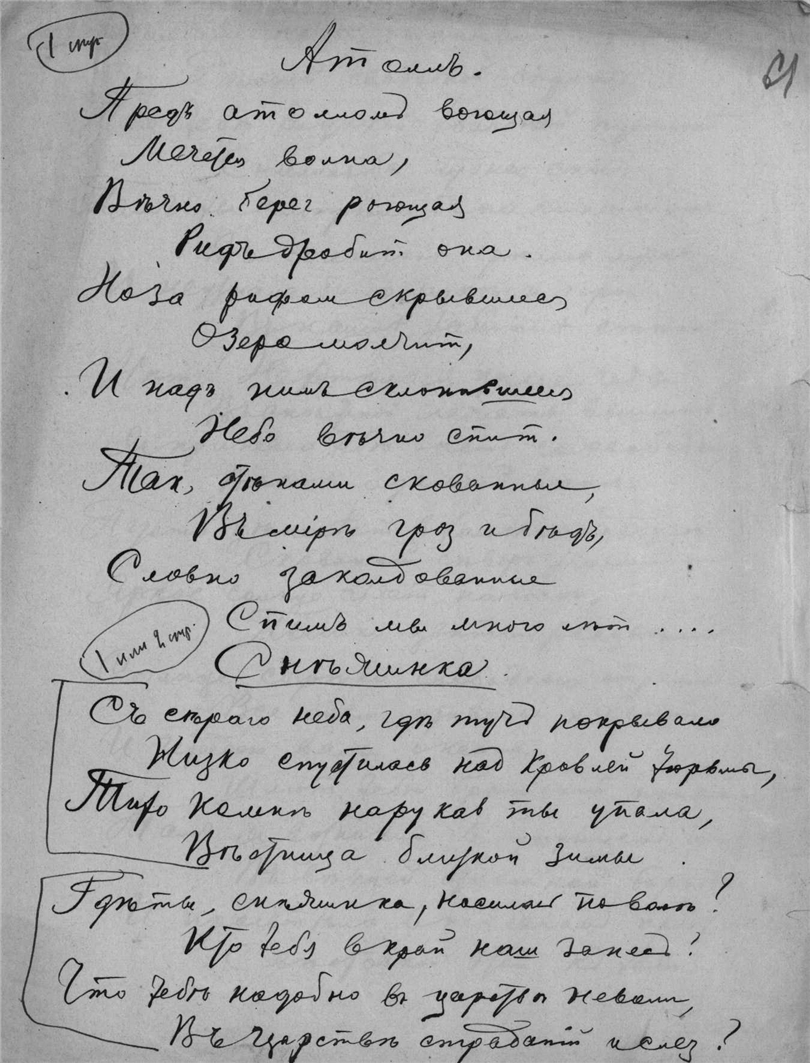 1 стр.
51
Атоллъ.
Предъ атолломъ воющая
Мечется волна,
Вѣчно берег роющая
Рифъ дробит она.
Но за рифом скрывшися
Озеро молчит,
И надъ нимъ склонившися
Небо вѣчно спит.
Так, стѣнами скованные,
Въ мірѣ гроз и бѣдъ,
Словно заколдованные
Спимъ мы много лѣт ....
1 или 2 стр.
Снѣжинка.
Съ сѣраго неба, гдѣ тучъ покрывало
Низко спустилась над кровлей тюрьмы,
Тихо на рукав ты упала,
Вѣстница близкой зимы.
Гдѣ ты, снѣжинка, носилась по волѣ?
Кто тебя в край наш занес?
Что тебѣ надобно в царствѣ неволи,
Въ царствѣ страданій и слез?